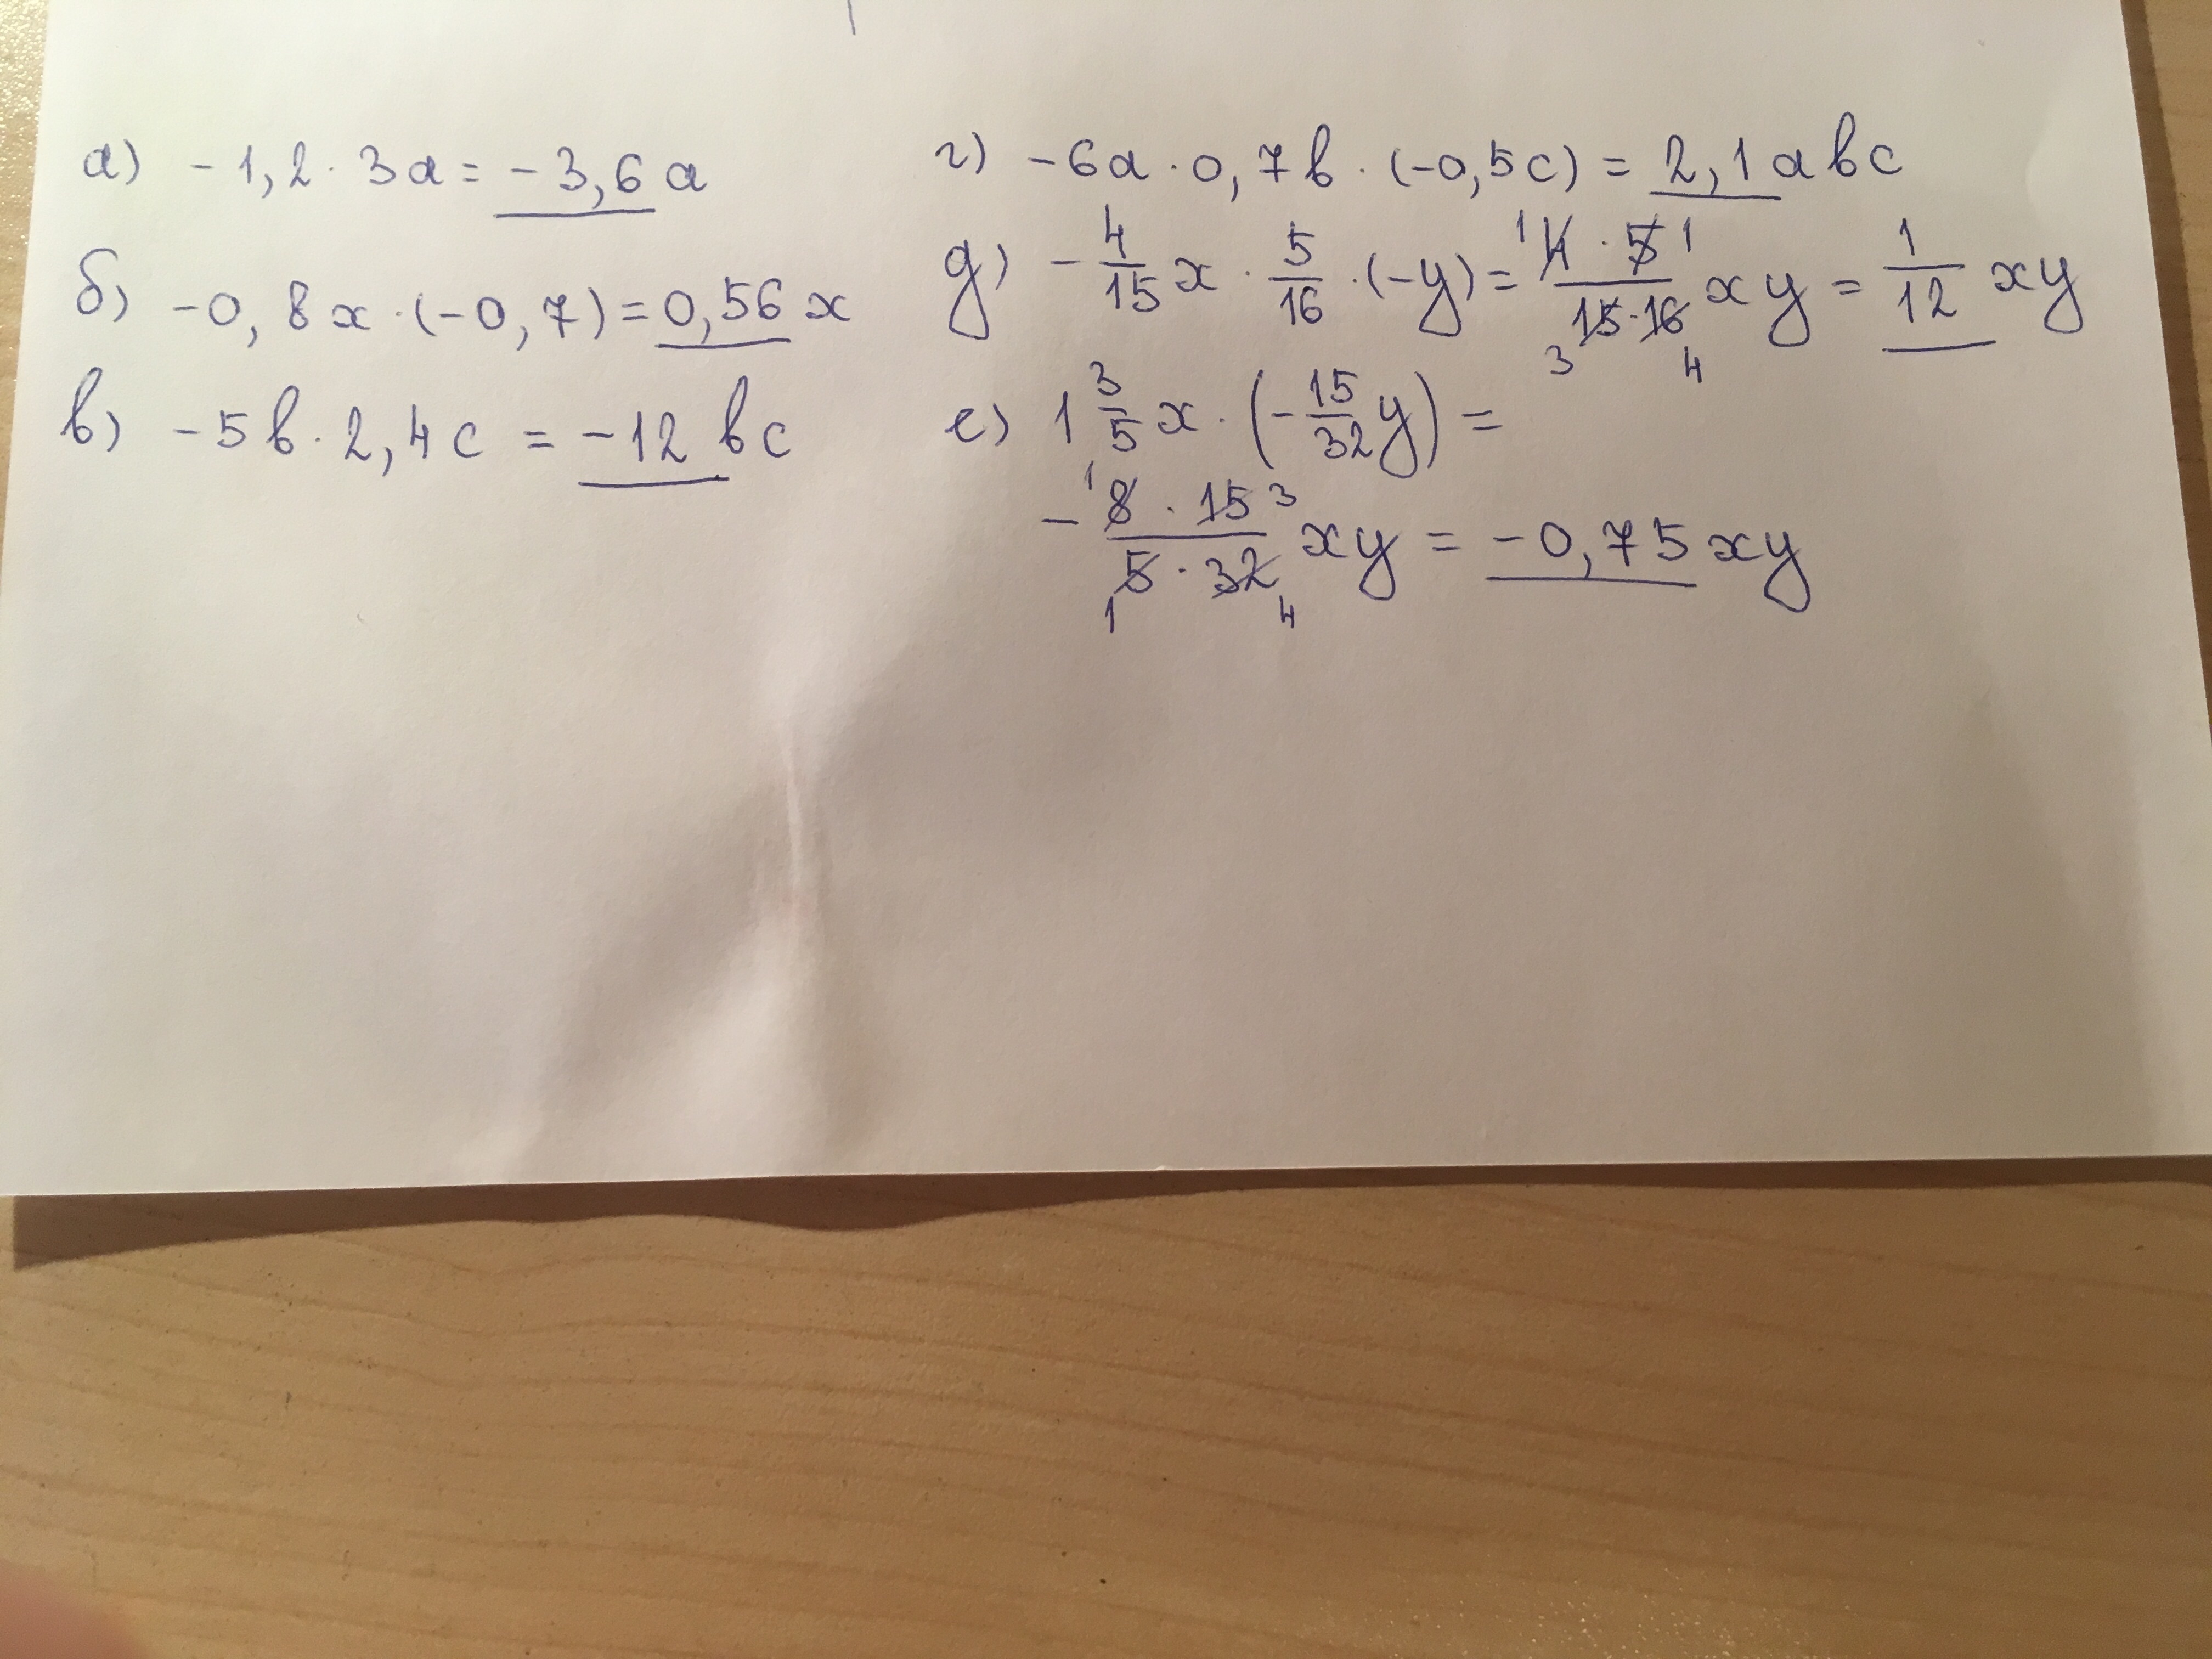 а) -1,2 · 3a = -3,6 a
б) -0,8x · (-0,7) = 0,56 x
в) -5b · 2,4c = -12 bc
г) -6a · 0,7b · (-0,5c) = 2,1 abc
д) -4/15 x · 5/16 · (-y) = 4 · 5 / 15 · 16 xy = 1/12 xy
1 1
3 4
е) 1 3/5 x · (-15/32 y) =
- 8 · 15 / 5 · 32 xy = -0,75 xy
1 3
1 4